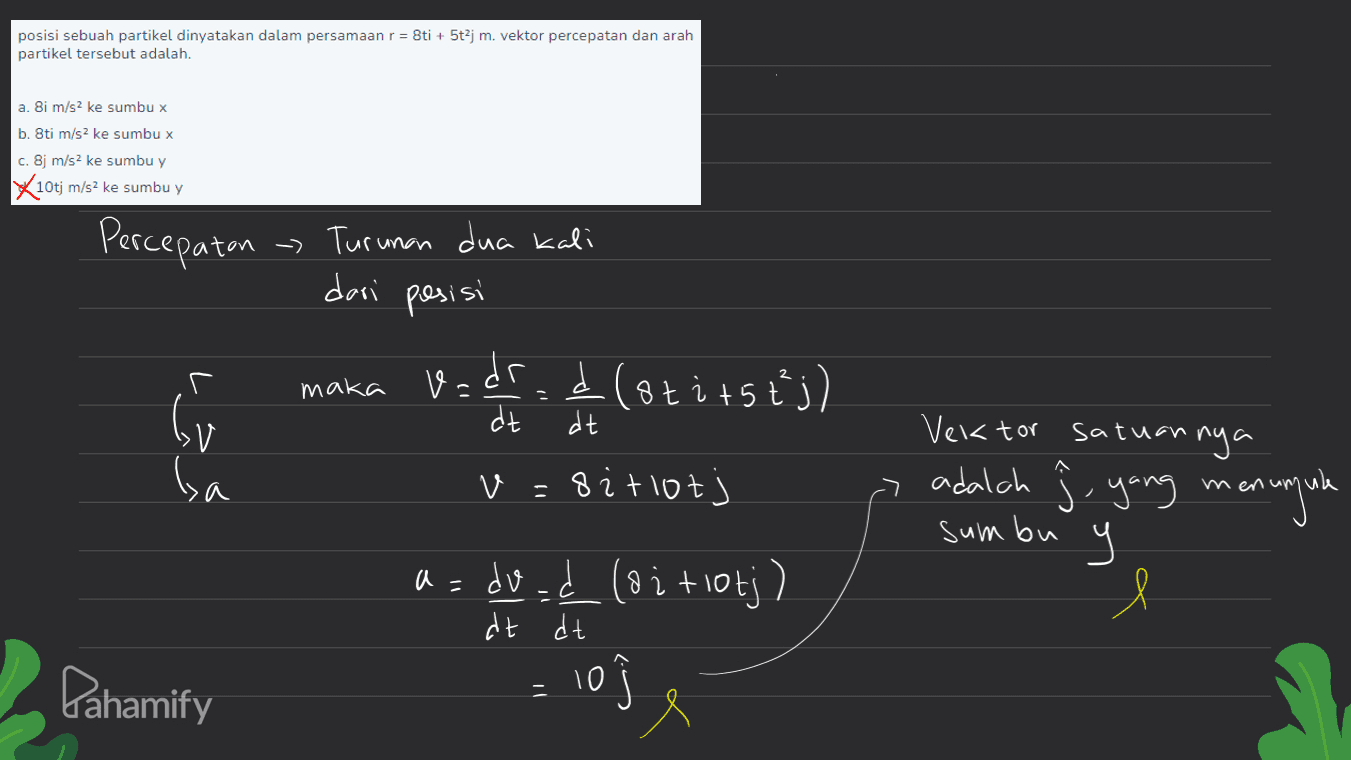 posisi sebuah partikel dinyatakan dalam persamaan r = 8ti + 5t²j m. vektor percepatan dan arah
partikel tersebut adalah.
a. 8i m/s² ke sumbu x
b. 8ti m/s² ke sumbu x
c. 8j m/s² ke sumbu y
d. 10tj m/s² ke sumbu y
Percepatan → Turunan dua kali
dari posisi
r
v
a
maka v = dr/dt = d/dt (8ti + 5t²j)
v = 8i + 10tj
a = dv/dt = d/dt (8i + 10tj)
= 10ĵ
Vektor satuannya
adalah ĵ, yang menunjuk
sumbu y
Pahamify